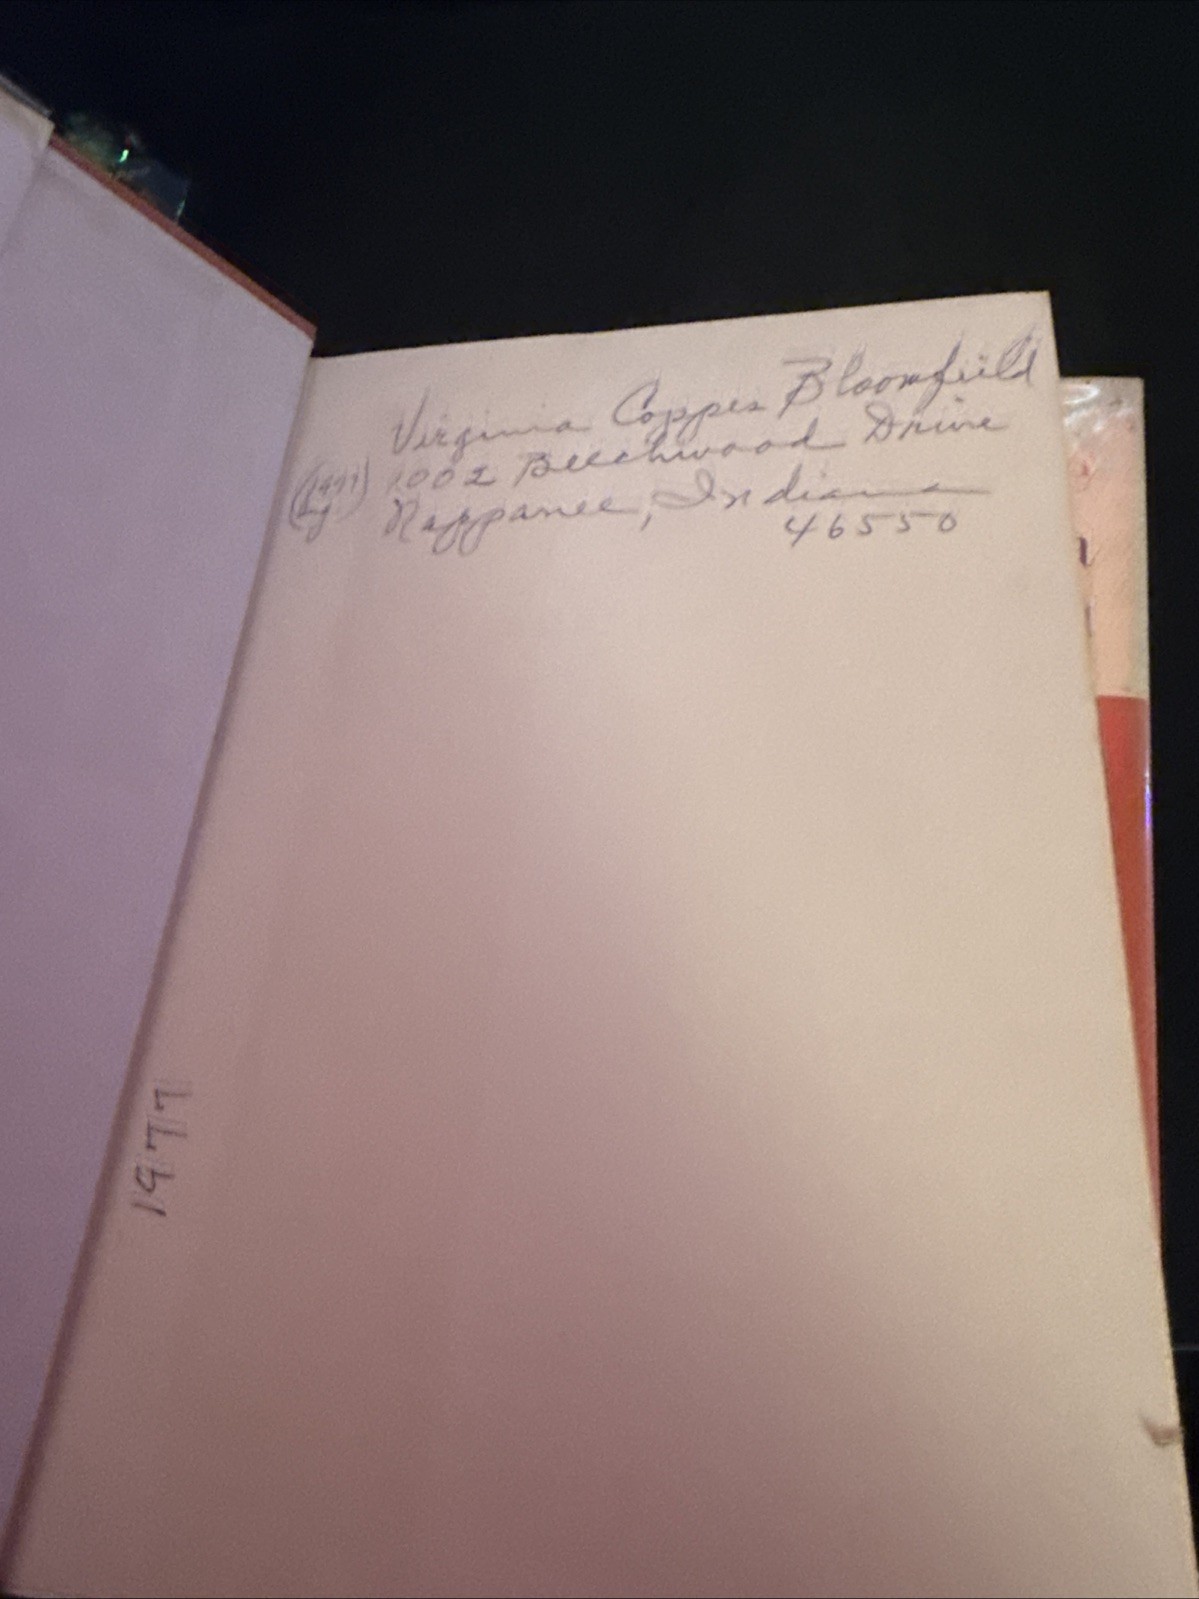 Virginia Coppes Bloomfield
1002 Beechwood Drive
(1977) Nappanee, Indiana
46550
1977